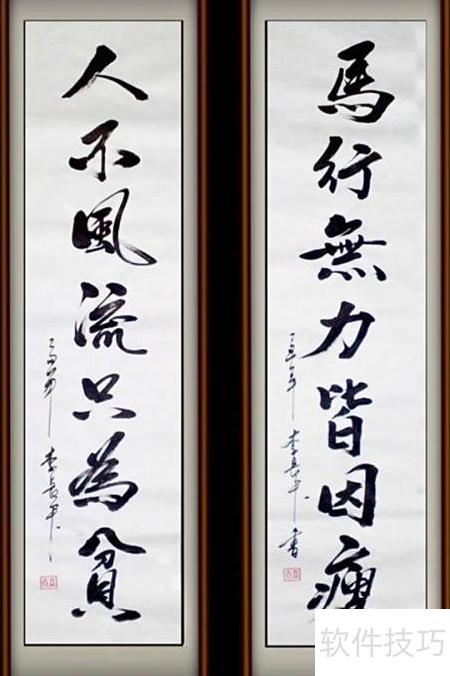 馬行無力皆因瘦
李長平書
人不風流只為貧
李長平
软件技巧